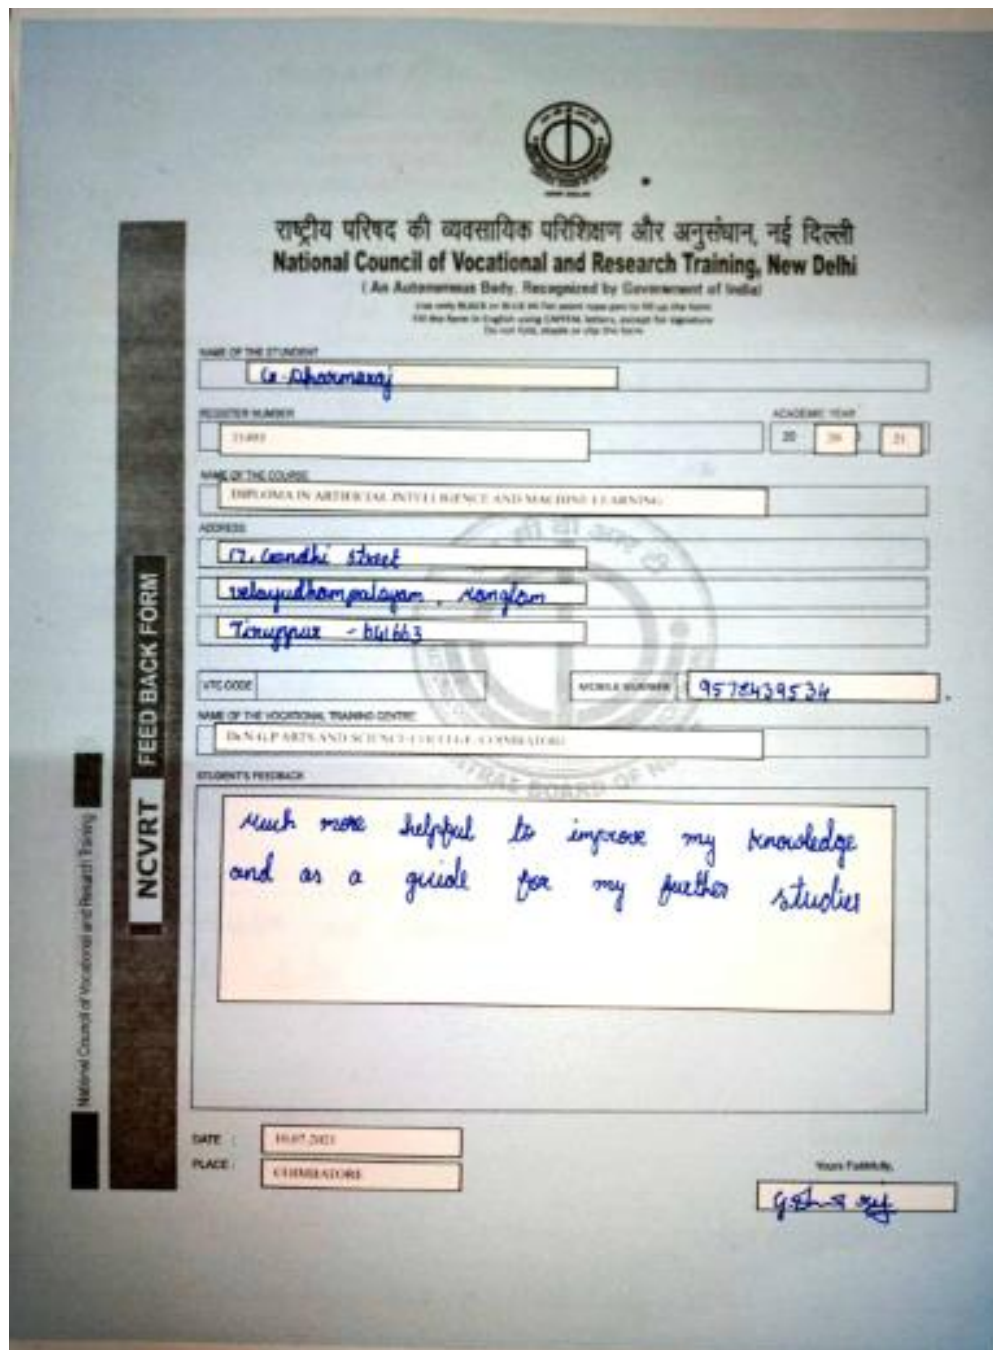 राष्ट्रीय परिषद की व्यवसायिक परिशिक्षण और अनुसंधान, नई दिल्ली
National Council of Vocational and Research Training, New Delhi
( An Autonomous Body, Recognized by Government of India)
Use only BLACK or BLUE ink for point type pen to fill up the form
Fill the form in English using CAPITAL letters, except for signature
Do not fold, staple or clip the form
NAME OF THE STUNDENT
G. Dharmaraj
REGISTER NUMBER
ACADEMIC YEAR
20 20 21
NAME OF THE COURSE
DIPLOMA IN ARTIFICIAL INTELLIGENCE AND MACHINE LEARNING
ADDRESS
17, Gandhi street
velayudhampalayam, Manglam
Tiruppur - 641663
VTC CODE
MOBILE NUMBER 9578439534
NAME OF THE VOCATIONAL TRAINING CENTRE
Dr.N.G.P ARTS AND SCIENCE COLLEGE, COIMBATORE
STUDENT'S FEEDBACK
Much more helpful to improve my knowledge
and as a guide for my further studies
DATE : 10.07.2021
PLACE : COIMBATORE
Yours Faithfully,
NCVRT FEED BACK FORM
National Council of Vocational and Research Training